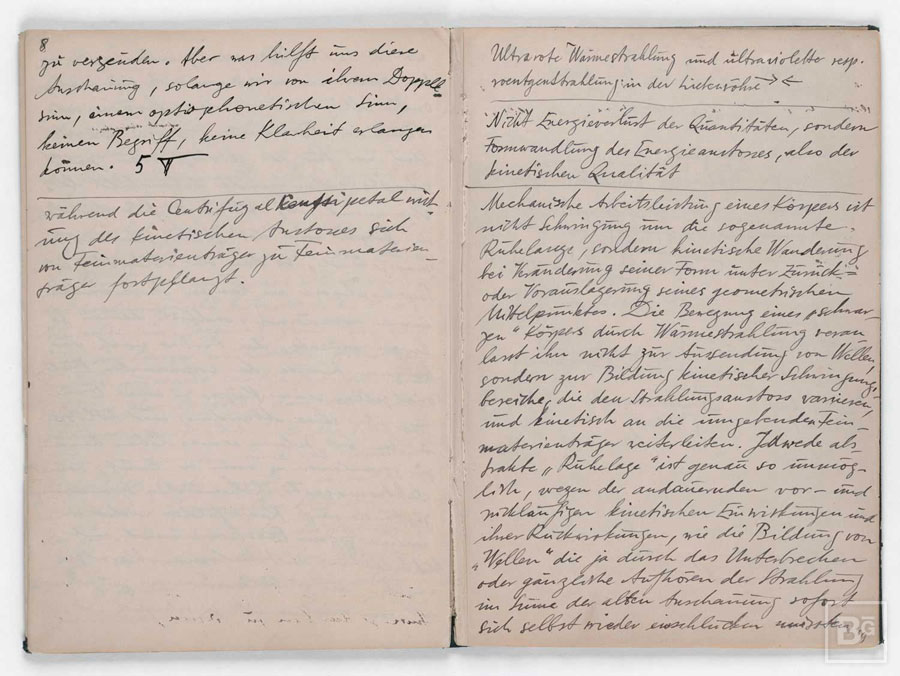 8
zu vergeuden. Aber was hilft uns diese
Anschauung, solange wir von ihrem Doppel-
sinn, einem optophonetischen Sinn,
keinen Begriff, keine Klarheit erlangen
können. 5
während die Centrifugal
ung des kinetischen Anstosses sich
von Feinmaterienträger zu Feinmaterien-
träger fortpflanzt.
Ultrarote Wärmestrahlung und ultraviolette resp.
roentgenstrahlung in der
Nicht Energieverlust der Quantitäten, sondern
Formwandlung des Energieanstosses, also der
kinetischen Qualität
Mechanische Arbeitsleistung eines Körpers ist
nicht Schwingung um die sogenannte
Ruhelage, sondern kinetische Wanderung
bei Veränderung seiner Form unter Zurück-
oder Vorauslagerung seines geometrischen
Mittelpunktes. Die Bewegung eines „schwar-
zen" Körpers durch Wärmestrahlung veran
lasst ihn nicht zur Aussendung von Wellen,
sondern zur Bildung kinetischer Schwingungs-
bereiche, die den Strahlungsanstoss variieren,
und kinetisch an die umgebenden Fein-
materienträger weiterleiten. Jedwede abs-
trakte „Ruhelage" ist genau so unmög-
lich, wegen der andauernden vor- und
rückläufigen kinetischen Einwirkungen und
ihrer Rückwirkungen, wie die Bildung von
„Wellen" die ja durch das Unterbrechen
oder gänzliche Aufhören der Strahlung
im Sinne der alten Anschauung sofort
sich selbst wieder einschlucken müssten
BG